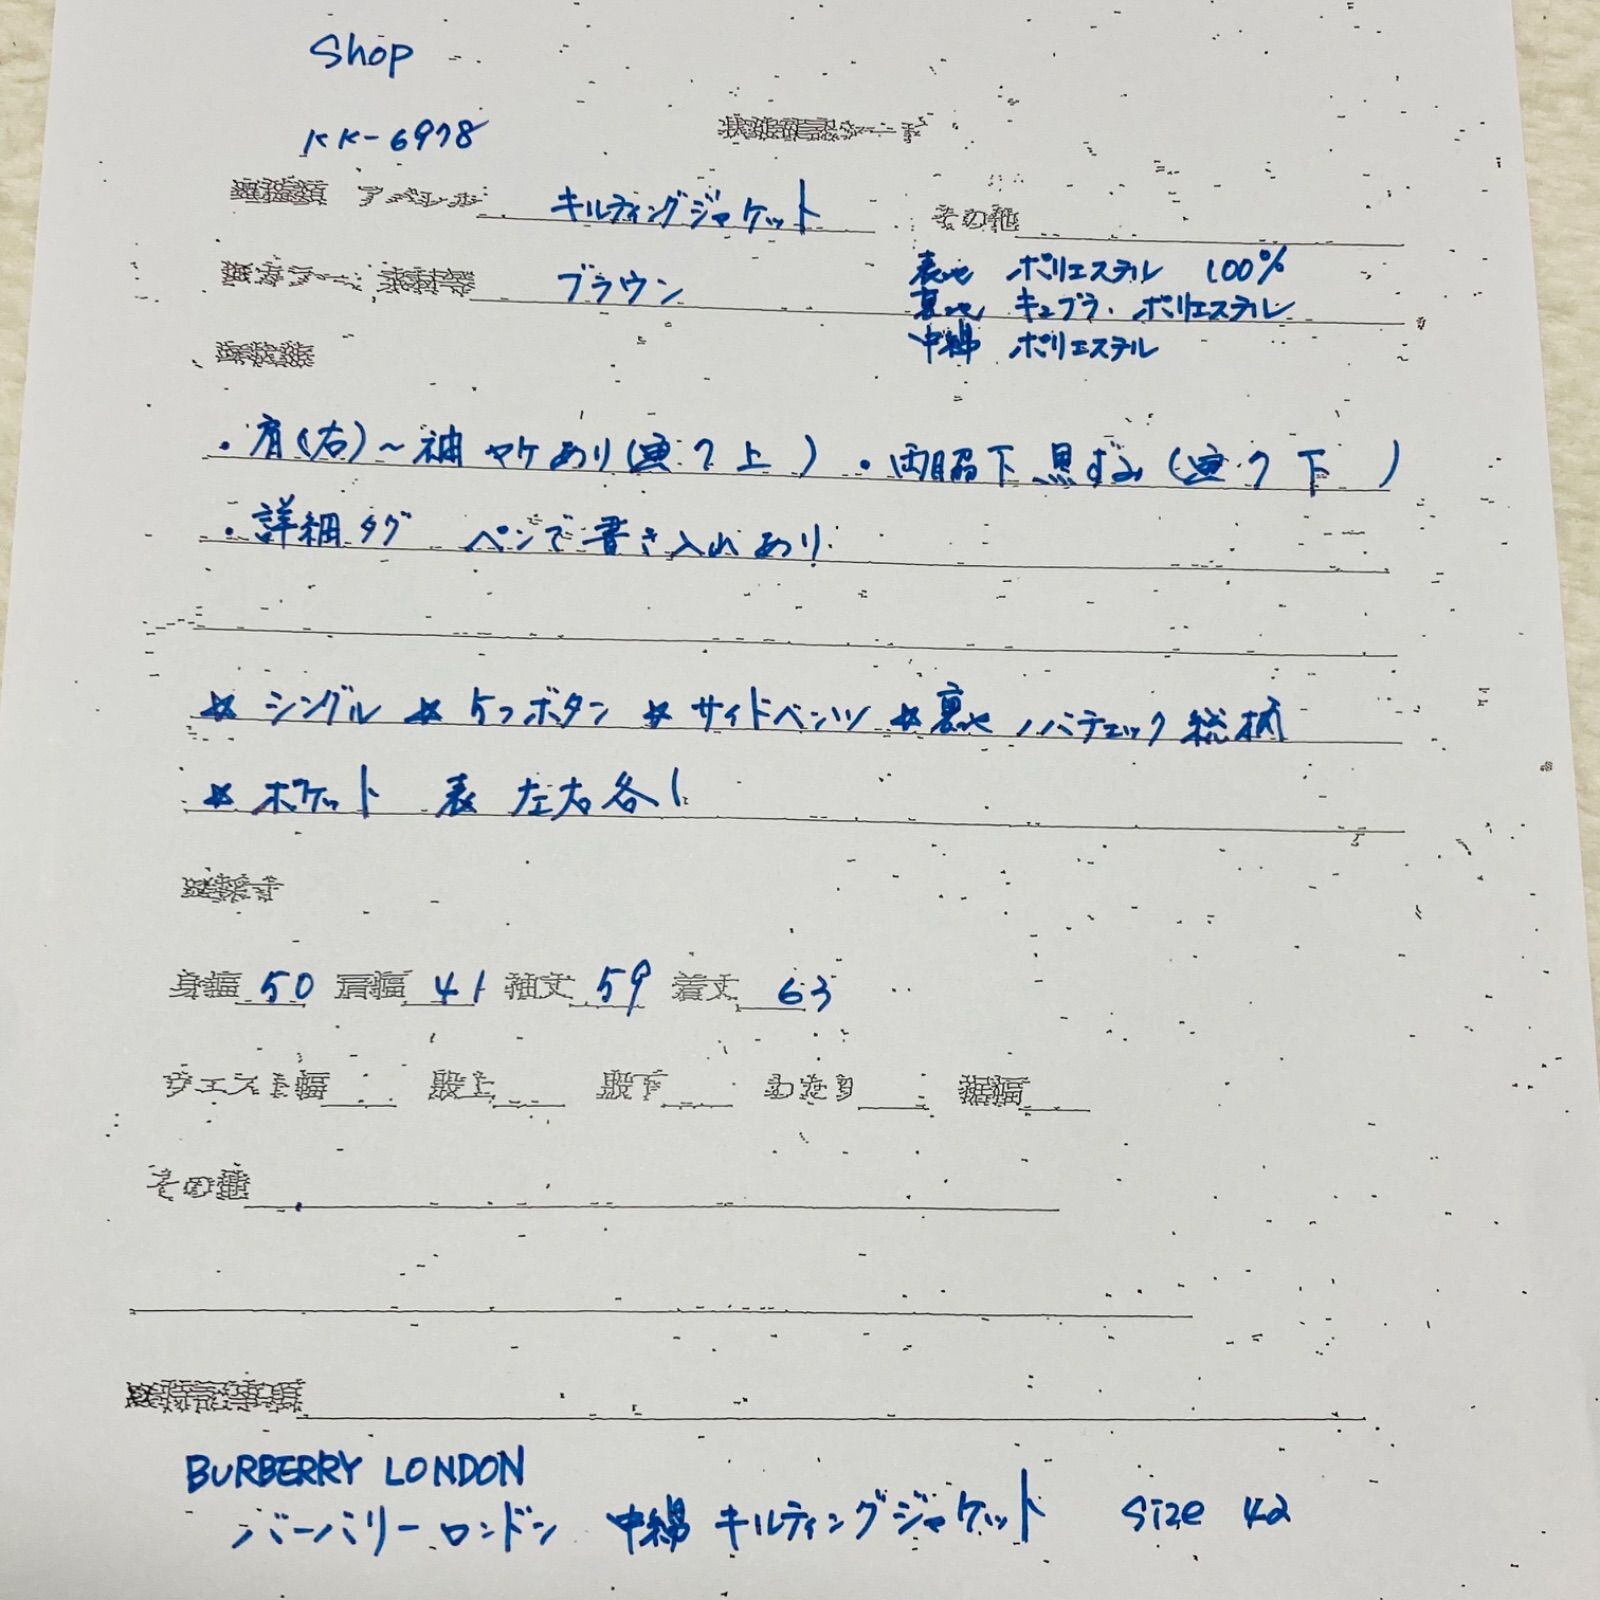 Shop
KK-6978
状態確認シート
アパレル キルティングジャケット その他
カラー、素材等 ブラウン 表地 ポリエステル 100%
裏地 キュプラ・ポリエステル
中綿 ポリエステル
・肩(右)~袖 ヤケあり(画?上 ) ・両脇下 黒ずみ(画?下 )
・詳細タグ ペンで書き入れあり
☆ シングル ☆ ケンボタン ☆ サイドベンツ ☆ 裏地 ノバチェック 総柄
☆ ポケット 表 左右各1
採寸
身幅 50 肩幅 41 袖丈 59 着丈 63
ウエスト幅 股上 股下 わたり 裾幅
その他
特記事項
BURBERRY LONDON
バーバリーロンドン 中綿 キルティングジャケット Size 42